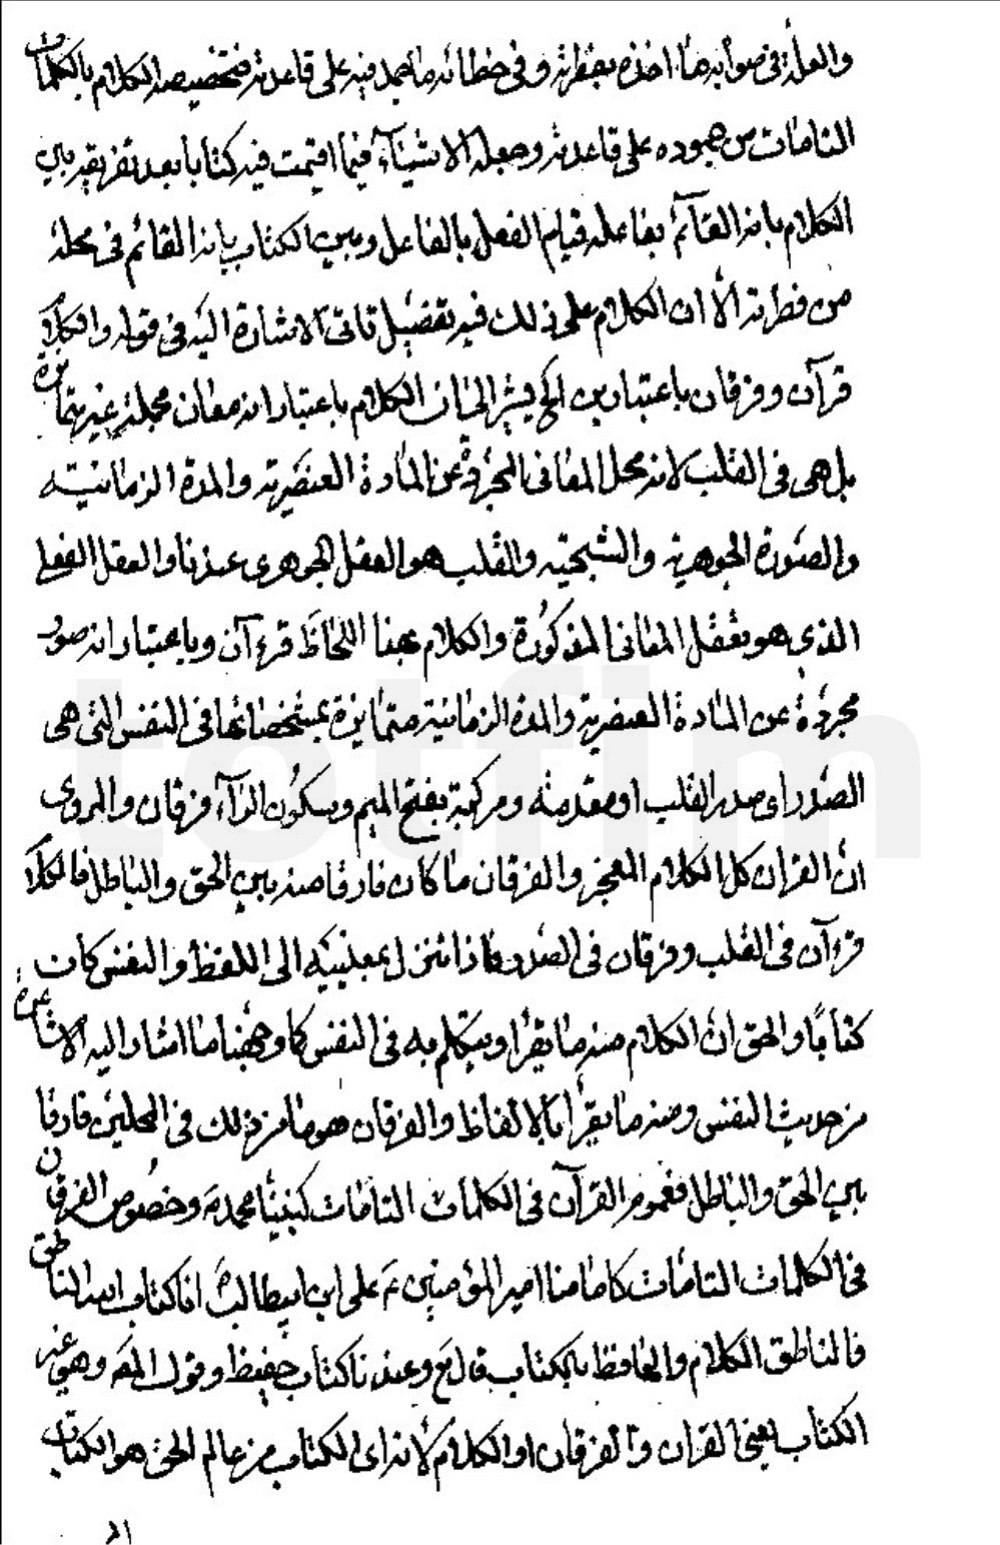 والعلة في صوابه ما اخذه بفطرته وفي خطائه ما يجمد فيه على قاعدته فتخصيصه الكلام بالكلمات
التامات من جموده على قاعدته وجعله الاشياء فيما اقيمت فيه كتابا بعد تفريقه بين
الكلام بانه القائم بفاعله قيام الفعل بالفاعل وبين الكتاب بانه القائم في محله
من فطرته الا ان الكلام على ذلك فيه تفصيل تاتي الاشارة اليه في قوله والكلام
قرآن وفرقان باعتبارين الخ يشير الى ان الكلام باعتبار انه معان مجملة غير متمايزة
بل هي في القلب لانه محل المعاني المجردة عن المادة العنصرية والمدة الزمانية
والصورة الجوهرية والشبحية والقلب هو العقل الجوهري عندنا والعقل الفعلي
الذي هو تعقل المعاني المذكورة والكلام بهذا اللحاظ قرءآن وباعتبار انه صور
مجردة عن المادة العنصرية والمدة الزمانية متمايزة بمشخصاتها في النفس التي هي
الصدر اي صدر القلب او مقدمته ومركبه بفتح الميم وسكون الرآء فرقان والمروي
ان القران كل الكلام المعجز والفرقان ما كان فارقا منه بين الحق والباطل فالكلام
قرءآن في القلب وفرقان في الصدر فاذا تنزل بمعنييه الى اللفظ والنقش كان
كتابا والحق ان الكلام منه ما يقرا ويتكلم به في النفس كاوجهنا ما اشار اليه الاشاعرة
من حديث النفس ومنه ما يقرأ بالالفاظ والفرقان هو ما من ذلك في المحلين فارقا
بين الحق والباطل فعموم القرآن في الكلمات التامات كنبينا محمد ص وخصوص الفرقان
في الكلمات التامات كامامنا امير المؤمنين ع علي ابن ابيطالب انا كتاب الله الناطق
فالناطق الكلام والحافظ الكتاب قال تع وعندنا كتاب حفيظ وقول المص وهي غير
الكتاب يعني القران والفرقان او الكلام لانه اي الكتاب من عالم الخلق هو الكتاب